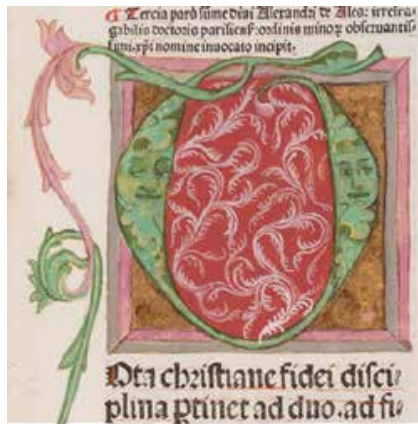 Tercia pars sūme divi Alexandri de Ales: irrefra
gabilis doctoris parisieñ: ordinis minoꝝ observantis
simi. xp̄i nomine invocato incipit.
Ota christiane fidei disci⸗
plina ꝑtinet ad duo. ad fi⸗